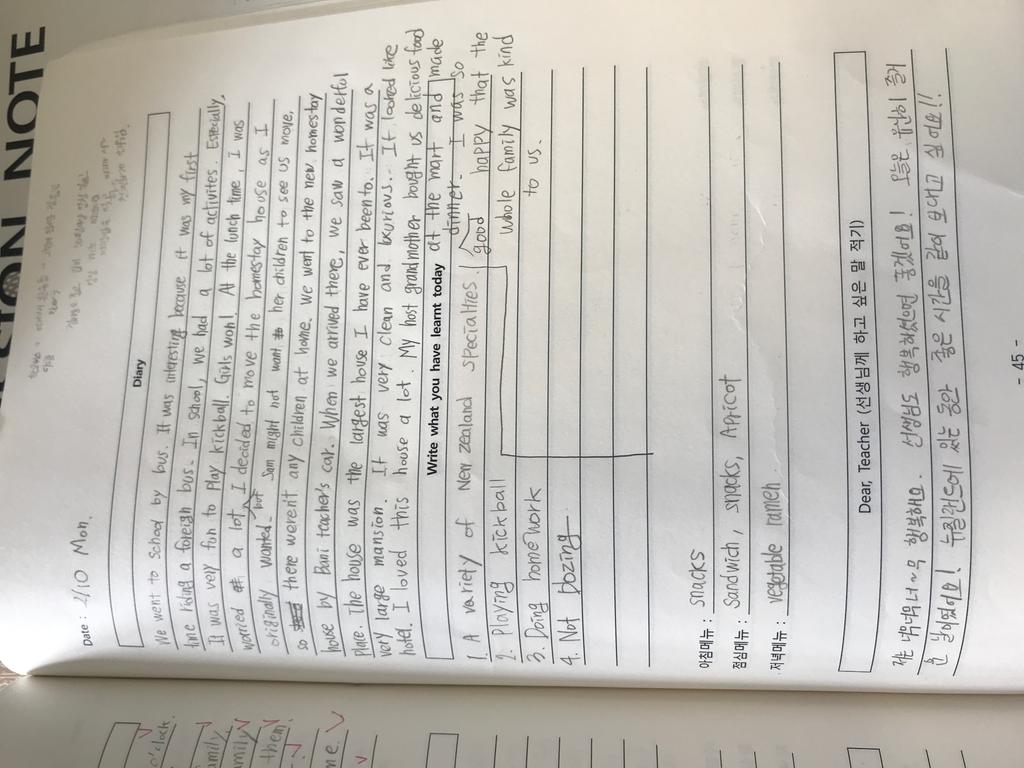 SION NOTE
Date : 2/10 Mon.
Diary
We went to school by bus. It was interesting because it was my first
time riding a foreign bus. In school, we had a lot of activites. Especially,
It was very fun to Play kickball. Girls won! At the lunch time, I was
worried a lot. I decided to move the homestay house as I
originally wanted. but Sam might not want her children to see us move,
so there weren't any children at home. We went to the new homestay
house by Bani teacher's car. When we arrived there, we saw a wonderful
place. The house was the largest house I have ever been to. It was a
very large mansion. It was very clean and luxurious. It looked like
hotel. I loved this house a lot. My host grandmother bought us delicious food
at the mart and made
dinner. I was so
good happy that the
whole family was kind
to us.
Write what you have learnt today
1. A variety of New zealand specialties.
2. Playing kickball
3. Doing homework
4. Not dozing
아침메뉴 : snacks
점심메뉴 : Sandwich, snacks, Apricot
저녁메뉴 : vegetable ramen
Dear, Teacher (선생님께 하고 싶은 말 적기)
저는 너무너무너~무 행복해요. 선생님도 행복하셨으면 좋겠어요! 오늘은 유난히 즐거
운 날이었어요! 뉴질랜드에 있는 동안 좋은 시간을 같이 보내고 싶어요!!
- 45 -
o'clock.
family
family
them.
me.